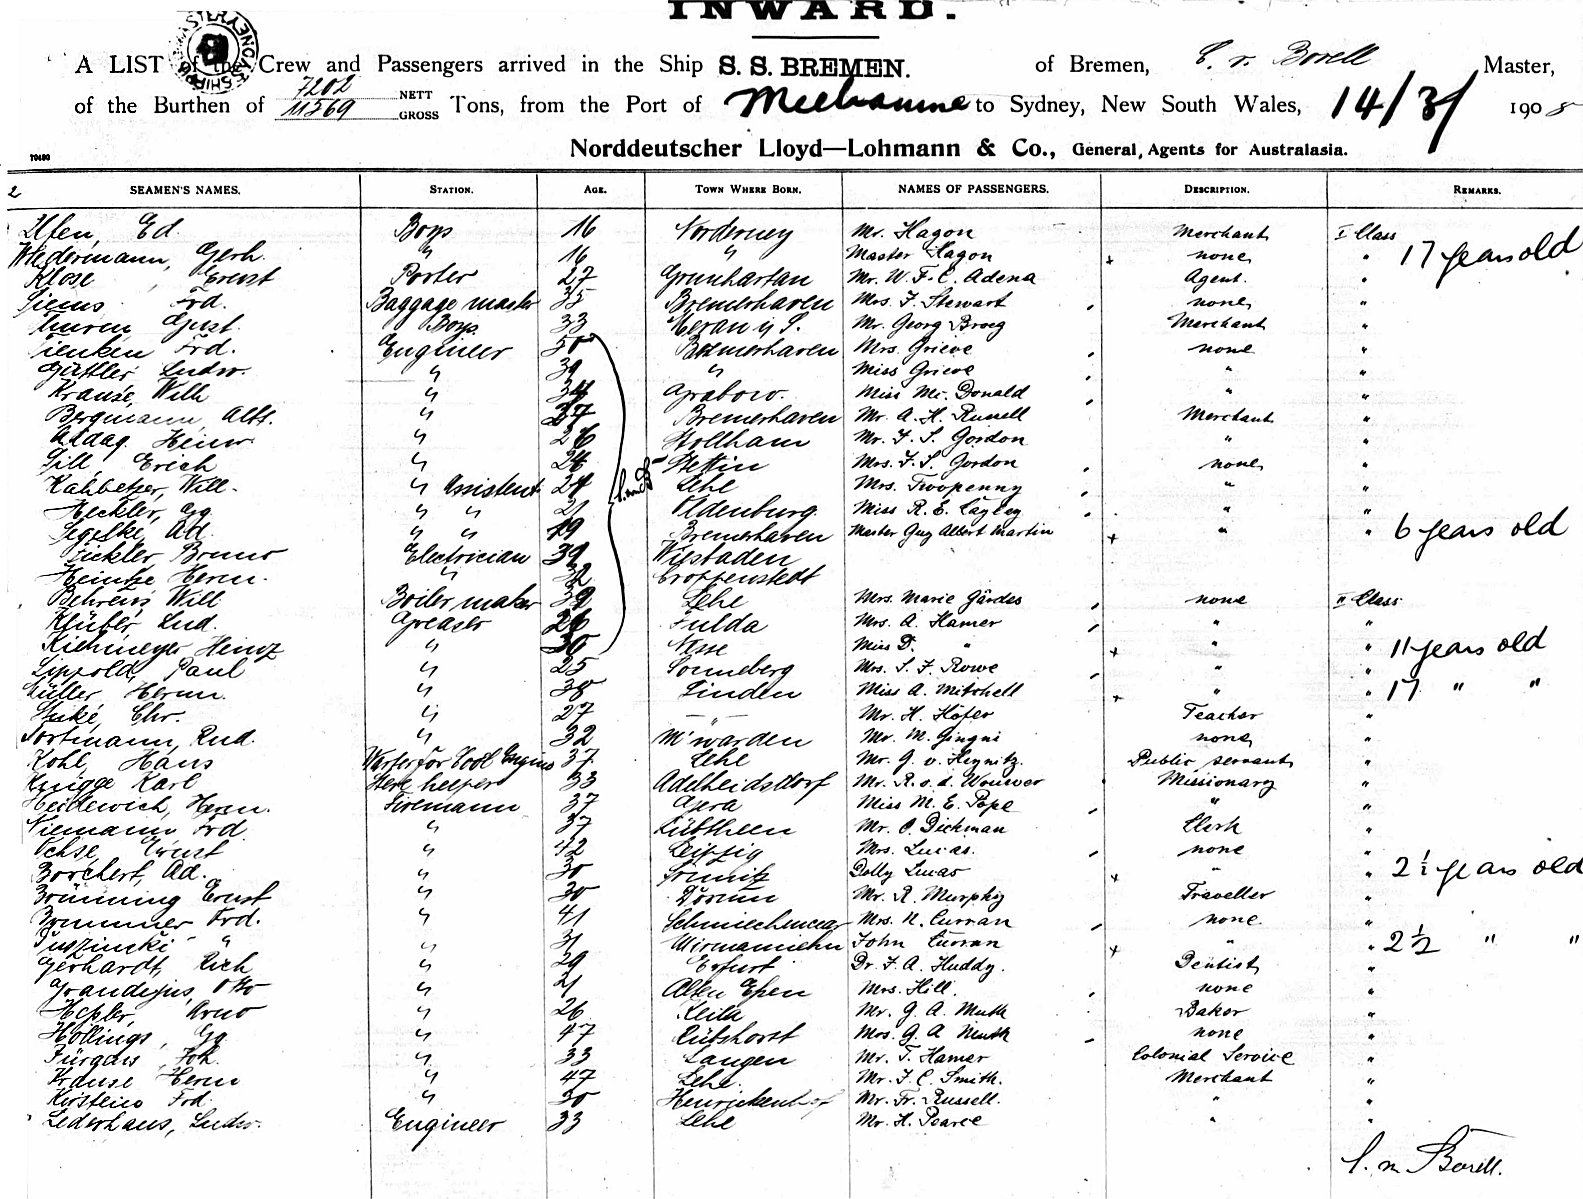 INWARD.
A LIST of the Crew and Passengers arrived in the Ship S. S. BREMEN. of Bremen, Master,
of the Burthen of 7202 NETT 11569 GROSS Tons, from the Port of Melbourne to Sydney, New South Wales, 14/3/ 1908
Norddeutscher Lloyd—Lohmann & Co., General Agents for Australasia.
2 SEAMEN'S NAMES. STATION. AGE. TOWN WHERE BORN. NAMES OF PASSENGERS. DESCRIPTION. REMARKS.
Ed Boys 16 Norderney Mr. Hagon Merchant I Class
Wiedermann, Gerh. " 16 " Master Hagon none " 17 years old
Klose, Ernst Porter 27 Mr. W. F. C. Adena Agent. "
Frd. Baggage master 35 Bremerhaven Mrs. F. Stewart none "
Gust. Boys 33 Meran Mr. Georg Broeg Merchant "
Tienken Frd. Engineer 50 Bremerhaven Mrs. Grieve none "
Güttler Ludw. " 39 " Miss Grieve " "
Krause, Wilh " 34 Grabow. Miss Mc. Donald " "
Bergmann, Alb. " 37 Bremerhaven Mr. A. H. Russell Merchant "
Addag. Heinr " 26 Stollham Mr. F. S. Gordon " "
Erich " 24 Stettin Mrs. F. S. Gordon none "
Will. " Assistent 24 Lehe Mrs. Twopenny " "
Heckler, Gg " " 21 Oldenburg. Miss R. E. Cayley " "
Segelke, Ad. " " 19 Bremerhaven Master Guy Albert Martin " " 6 years old
Bruno Electrician 39 Wiesbaden
Heintze Herm. " 32 Croppenstedt
Behrens, Will Boiler maker 39 Lehe Mrs. Marie Gärdes none II Class
Klüber, Lud. Greaser 26 Fulda Mrs. A. Hamer " "
Kiehmeyer Heinz " 30 Nesse Miss D. " " " 11 years old
Lippold, Paul " 25 Sonneberg Mrs. S. F. Rowe " "
Herm. " 38 Linden Miss A. Mitchell " " 17 " "
Chr. " 27 — " — Mr. H. Höfer Teacher "
Portmann, Rud. " 32 Mr. M. Gingni none "
Kohl, Hans 37 Lehe Mr. G. v. Heynitz. Public servant "
Knigge Karl helper 33 Adelheidsdorf Mr. R. v. d. Wouwer Missionary "
Herm. Firemann 37 Gera Miss M. E. Pope " "
Niemann Frd. " 37 Lübtheen Mr. O. Dickman Clerk "
Ochse, Ernst " 42 Leipzig Mrs. Lucas. none "
Borchert, Ad. " 30 Dolly Lucas " " 2½ years old
Brünning Ernst " 30 Dorum Mr. R. Murphy Traveller "
Brummer Frd. " 41 Mrs. N. Curran none. "
" " 31 John Curran " " 2½ " "
Gerhardt, Rich " 29 Erfurt Dr. F. A. Huddy. Dentist "
Grandejus, Otto " 21 Alten Essen Mrs. Hill. none "
Arno " 26 Mr. G. A. Muth Baker "
Hollings, Gg " 47 Mrs. G. A. Muth none "
Joh. " 33 Langen Mr. T. Hamer Colonial Service "
Krause Herm " 47 Lehe. Mr. F. C. Smith. Merchant "
Kirstein Frd. " 30 Mr. Fr. Russell. " "
Lederhaus, Ludw. Engineer 33 Lehe Mr. H. Pearce " "